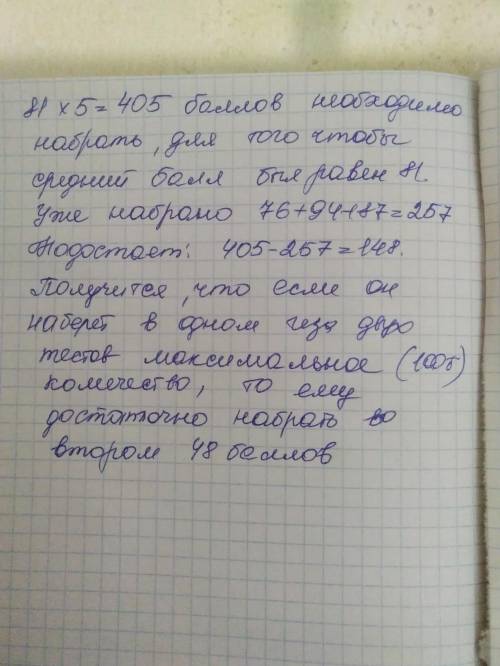 81 × 5 = 405 баллов необходимо
набрать, для того чтобы
средний балл был равен 81.
Уже набрано 76+94+87=257
Недостает: 405-257=148.
Получится, что если он
наберет в одном из двух
тестов максимальное (100б)
количество, то ему
достаточно набрать во
втором 48 баллов